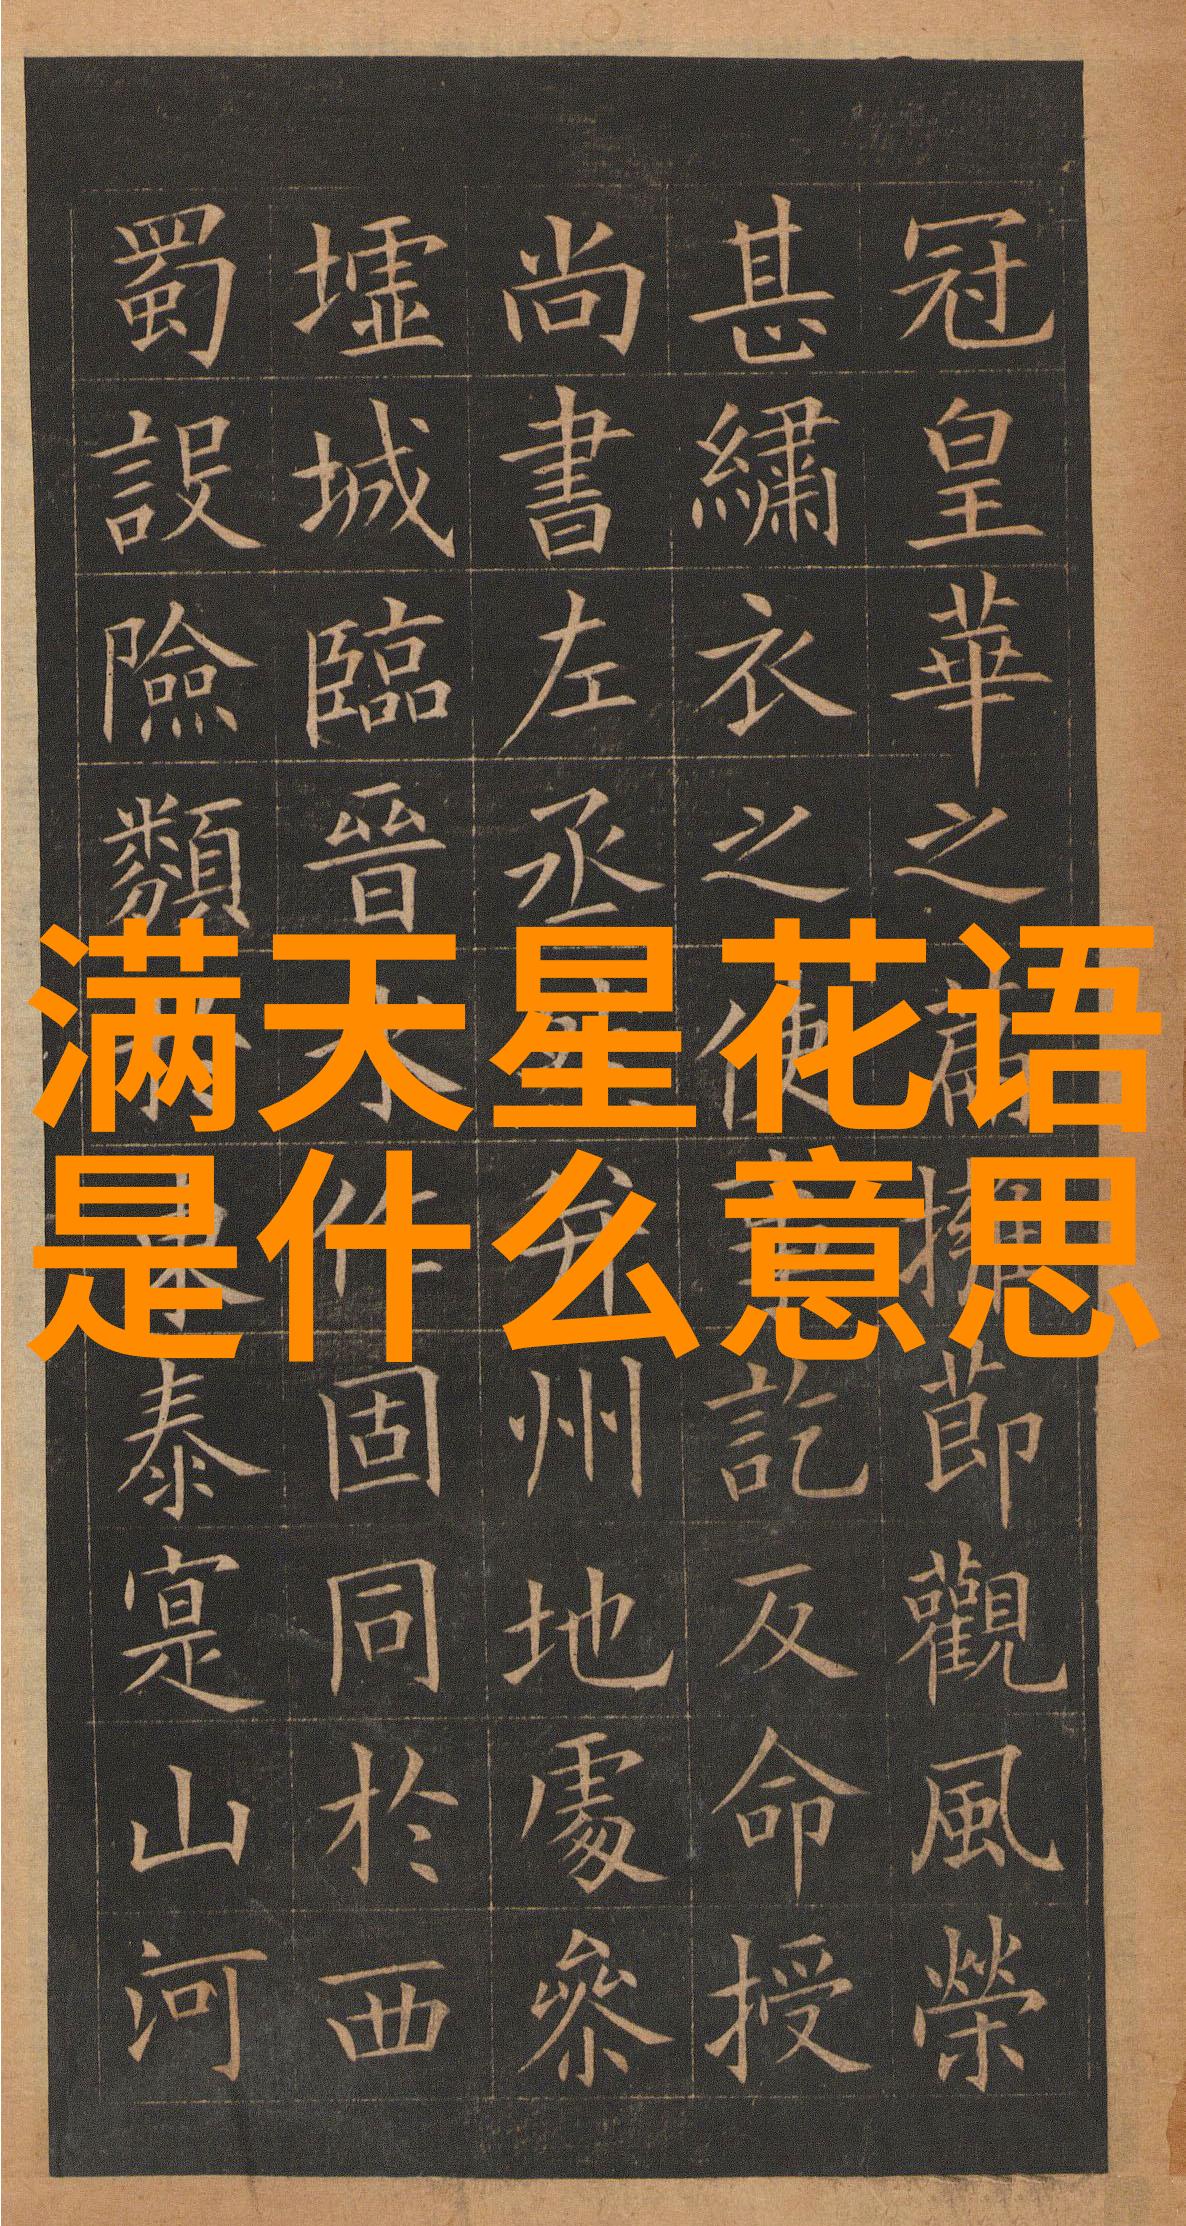 满天星花语
是什么意思
冠皇華之擁節觀風榮
甚繡衣之使訖反命授
尚書左丞州地處叅
墟城臨晉水作固同於西
蜀設險類泰寔山河